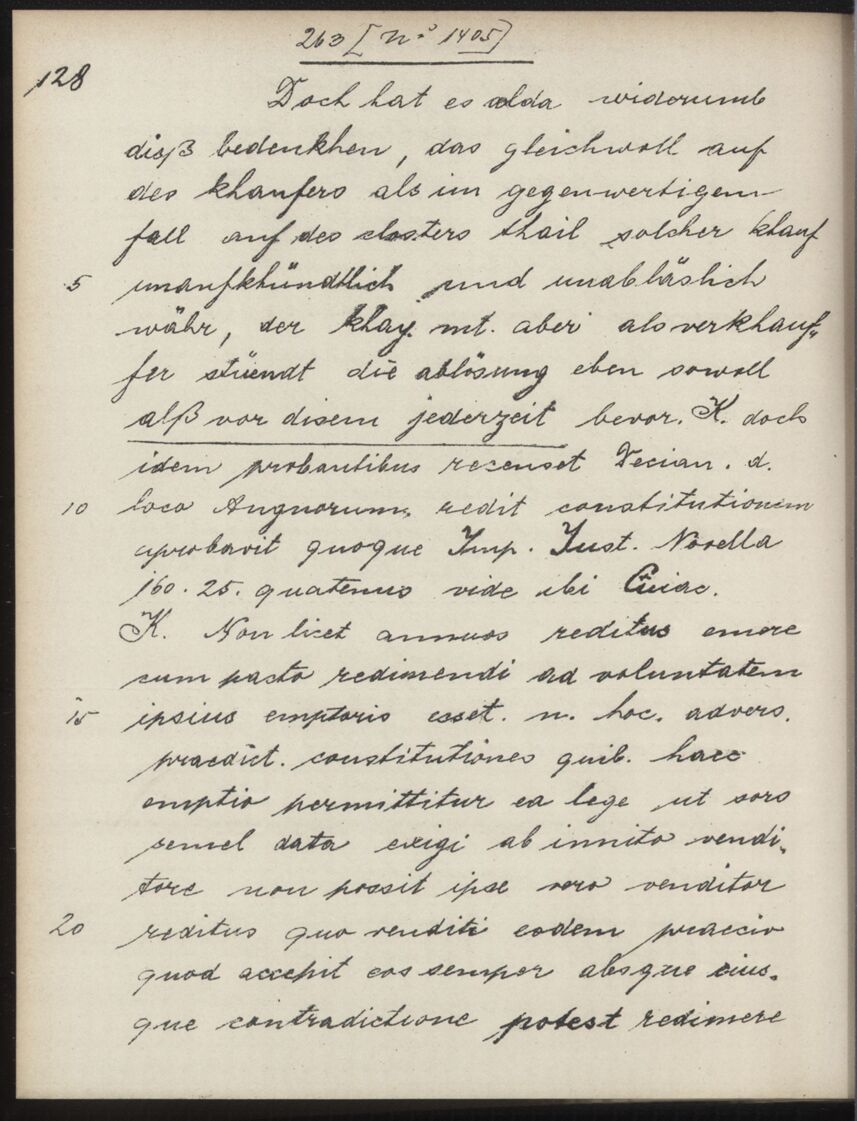 263 [No 1405]
128
Doch hat es alda widerumb
diß bedenkhen, das gleichwoll auf
des khaufers als im gegenwertigem
fall auf des closters thail solcher khauf
5 unaufkhündtlich und unabläslich
währ, der khay. mt. aber als verkhauf„
fer stüendt die ablösung eben sowoll
alß vor disem jederzeit bevor. K. doch
idem probantibus recenset Decian. d.
10 loco Angnorum, redit constitutionem
aprobavit quoque Imp. Just. Novella
160. 25. quatenus vide ibi Cuiac.
K. Non licet annuos reditus emere
cum pacto redimendi ad voluntatem
15 ipsius emptoris esset. n. hoc. advers.
praedict. constitutiones quib. haec
emptio permittitur ea lege ut sors
semel data exigi ab invito vendi„
tore non possit ipse vero venditor
20 reditus quo venditi eodem praecio
quod accepit eos semper absque eius„
que contradictione potest redimere